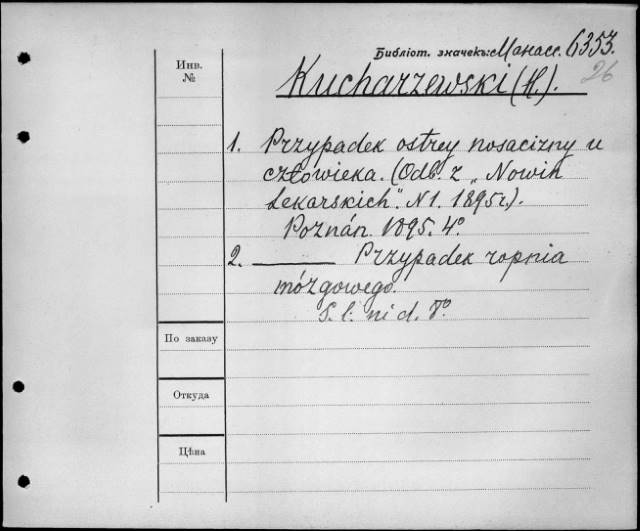 Библіот. значекъ: Манасс. 6353.
26
Инв.
№
Kucharzewski (H.).
1. Przypadek ostrey nosacizny u
człowieka. (Odb. z „Nowin
Lekarskich". N1. 1895 r.).
Poznań. 1895. 4°.
2. ——— Przypadek ropnia
mózgowego.
S. l. ni d. 8°.
По заказу
Откуда
Цѣна